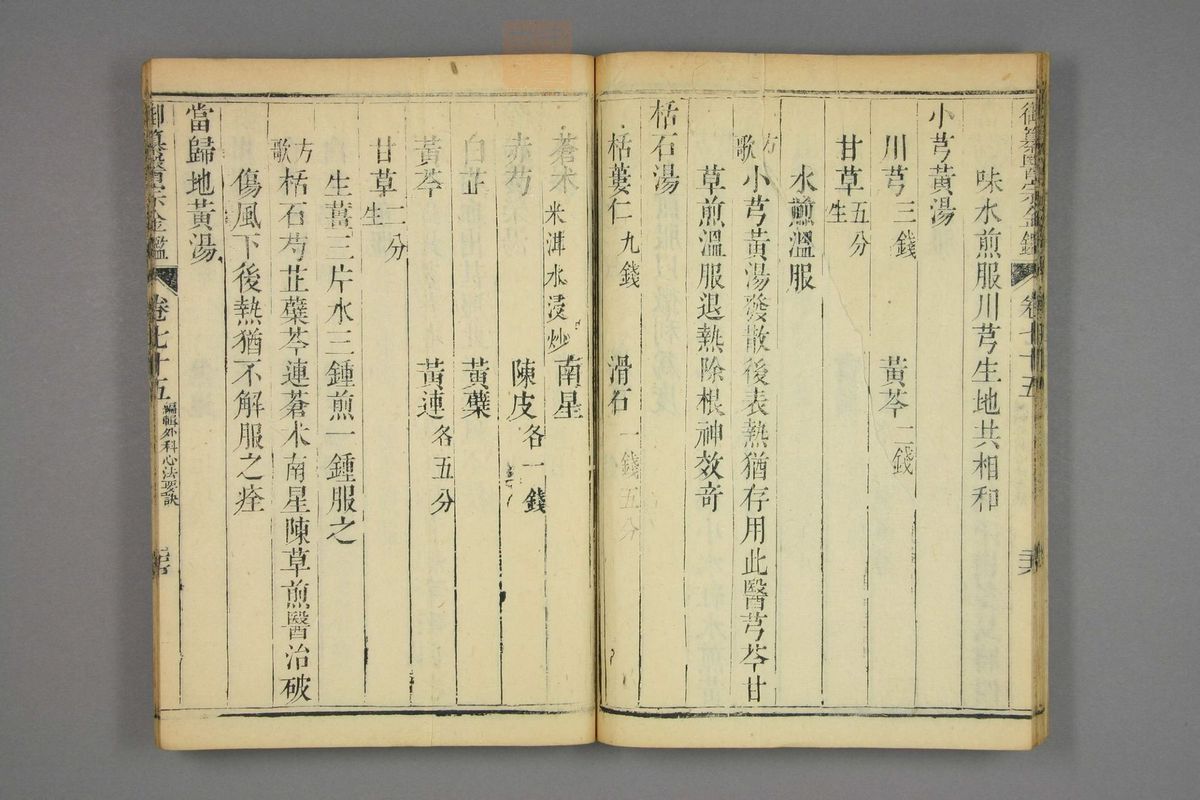 味水煎服川芎生地共相和
小芎黃湯
川芎三錢 黃芩二錢
甘草五分生
水煎溫服
方歌 小芎黃湯發散後表熱猶存用此醫芎芩甘
草煎溫服退熱除根神效奇
栝石湯
栝蔞仁九錢 滑石一錢五分
蒼朮米泔水浸炒 南星
赤芍 陳皮各一錢
白芷 黃蘗
黃芩 黃連各五分
甘草二分生
生薑三片水三鍾煎一鍾服之
方歌 栝石芍芷蘗芩連蒼朮南星陳草煎醫治破
傷風下後熱猶不解服之痊
當歸地黃湯
御纂醫宗金鑑 卷七十五 編輯外科心法要訣